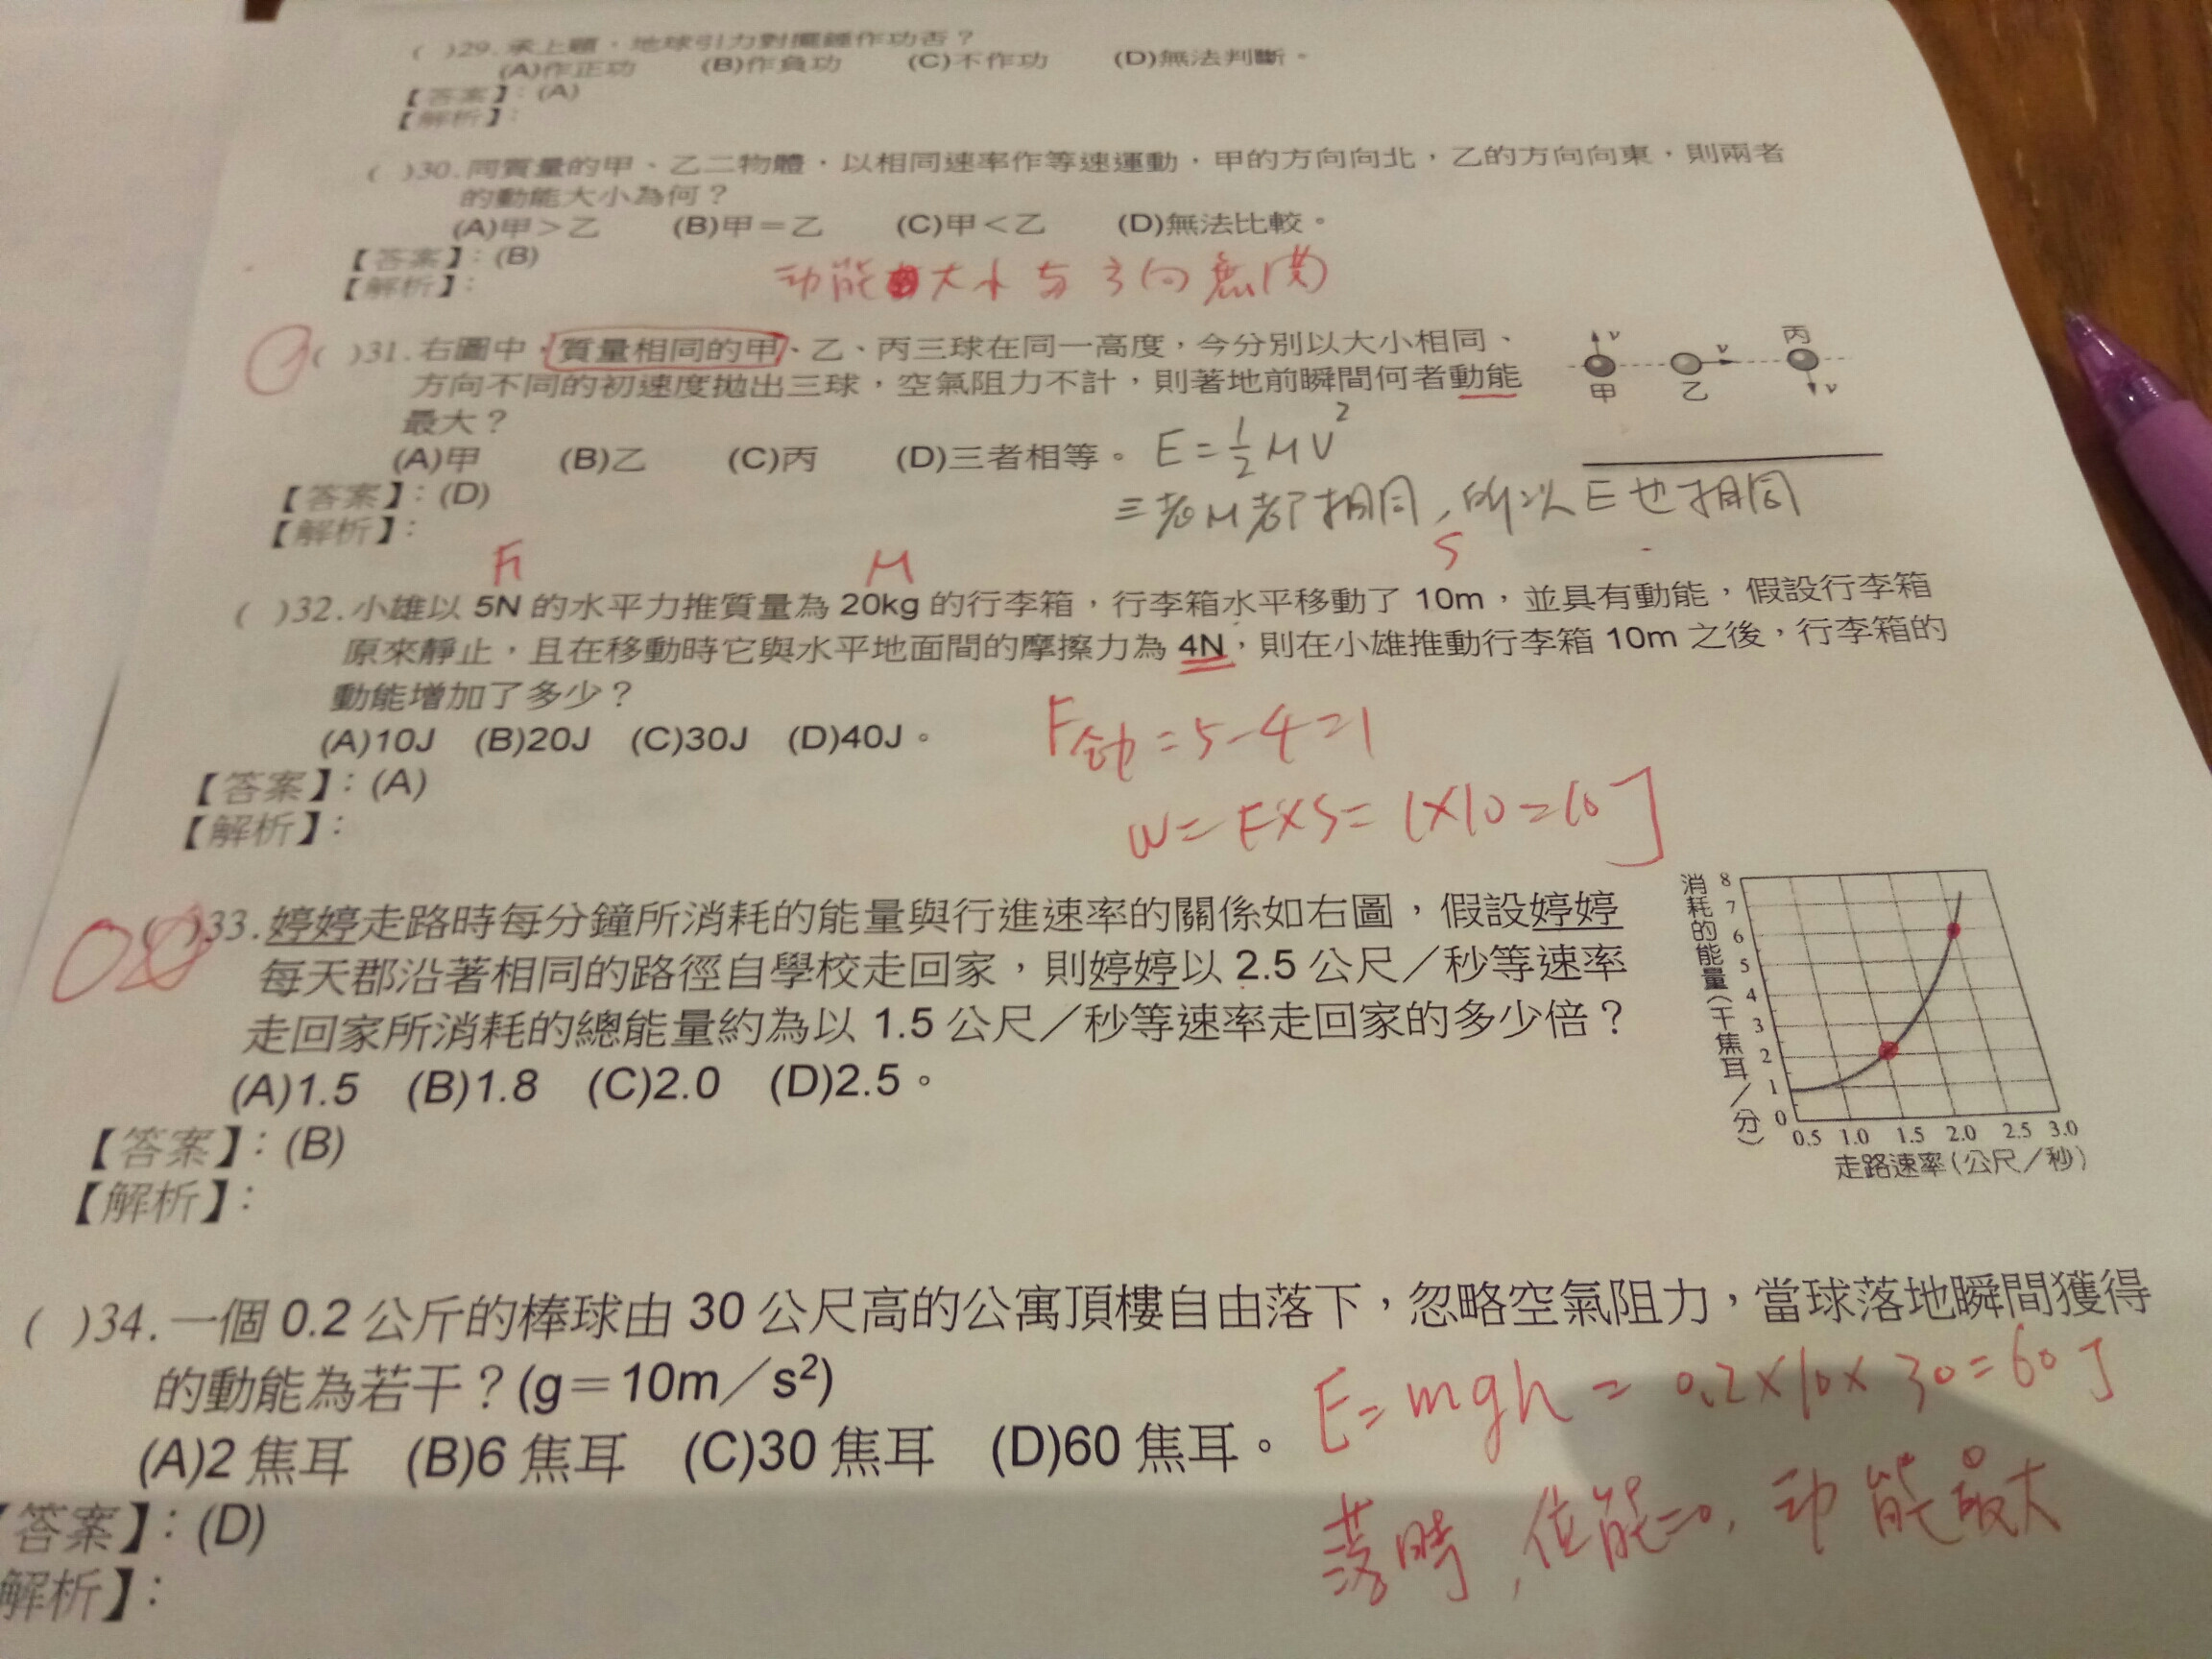 ( )29.承上題，地球引力對擺錘作功否？
(A)作正功 (B)作負功 (C)不作功 (D)無法判斷。
【答案】：(A)
【解析】：
( )30.同質量的甲、乙二物體，以相同速率作等速運動，甲的方向向北，乙的方向向東，則兩者
的動能大小為何？
(A)甲＞乙 (B)甲＝乙 (C)甲＜乙 (D)無法比較。
【答案】：(B)
【解析】：
动能大小与方向無關
( )31.右圖中，質量相同的甲、乙、丙三球在同一高度，今分別以大小相同、
方向不同的初速度拋出三球，空氣阻力不計，則著地前瞬間何者動能
最大？
(A)甲 (B)乙 (C)丙 (D)三者相等。
v
甲
v
乙
丙
v
E=½MV²
三者M都相同，所以E也相同
【答案】：(D)
【解析】：
F M S
( )32.小雄以 5N 的水平力推質量為 20kg 的行李箱，行李箱水平移動了 10m，並具有動能，假設行李箱
原來靜止，且在移動時它與水平地面間的摩擦力為 4N，則在小雄推動行李箱 10m 之後，行李箱的
動能增加了多少？
(A)10J (B)20J (C)30J (D)40J。
F合力=5-4=1
【答案】：(A)
W=F×S=1×10=10J
【解析】：
( )33.婷婷走路時每分鐘所消耗的能量與行進速率的關係如右圖，假設婷婷
每天郡沿著相同的路徑自學校走回家，則婷婷以 2.5 公尺／秒等速率
走回家所消耗的總能量約為以 1.5 公尺／秒等速率走回家的多少倍？
(A)1.5 (B)1.8 (C)2.0 (D)2.5。
消耗的能量(千焦耳／分)
8
7
6
5
4
3
2
1
0
0.5 1.0 1.5 2.0 2.5 3.0
走路速率(公尺／秒)
【答案】：(B)
【解析】：
( )34.一個 0.2 公斤的棒球由 30 公尺高的公寓頂樓自由落下，忽略空氣阻力，當球落地瞬間獲得
的動能為若干？(g＝10m／s²)
E=mgh=0.2×10×30=60J
(A)2 焦耳 (B)6 焦耳 (C)30 焦耳 (D)60 焦耳。
落時，位能=0，动能最大
【答案】：(D)
解析】：